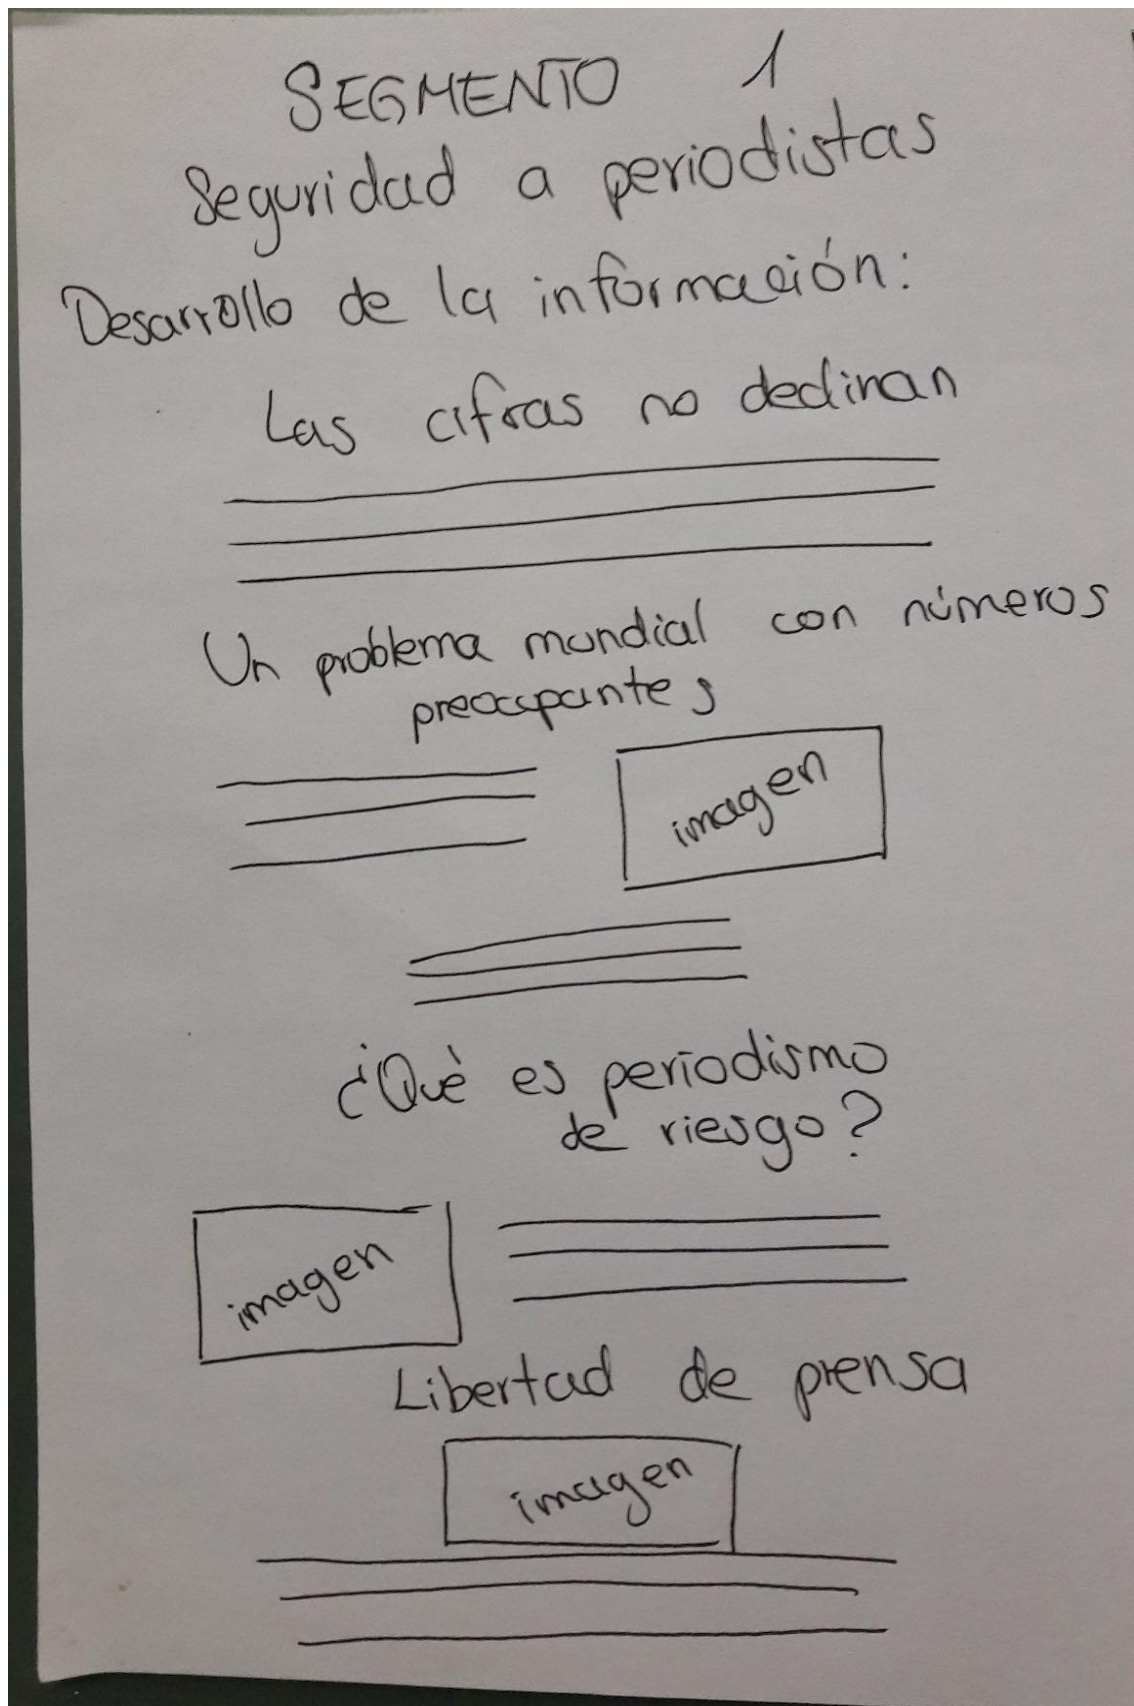 SEGMENTO 1
Seguridad a periodistas
Desarrollo de la información:
Las cifras no declinan
Un problema mundial con números
preocupantes
imagen
¿Què es periodismo
de riesgo?
imagen
Libertad de prensa
imagen